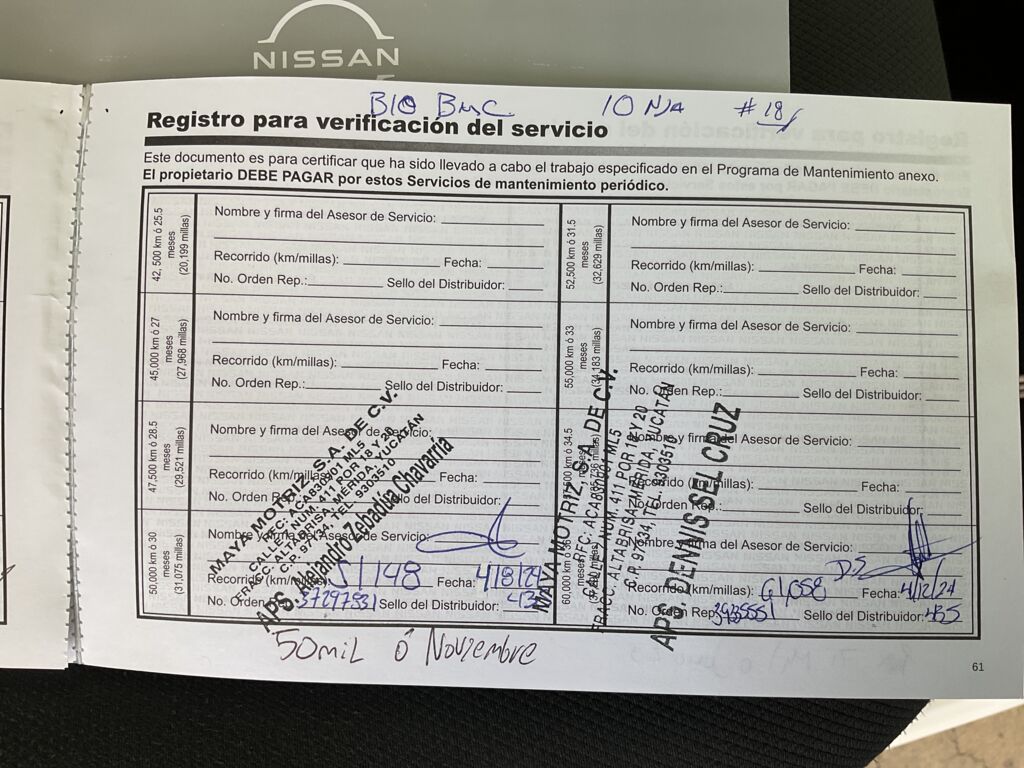 NISSAN
B10 BMC 10 NJA #18
Registro para verificación del servicio
Este documento es para certificar que ha sido llevado a cabo el trabajo especificado en el Programa de Mantenimiento anexo.
El propietario DEBE PAGAR por estos Servicios de mantenimiento periódico.
42, 500 km ó 25.5
meses
(20,199 millas)
Nombre y firma del Asesor de Servicio:
Recorrido (km/millas): Fecha:
No. Orden Rep.: Sello del Distribuidor:
45,000 km ó 27
meses
(27,968 millas)
Nombre y firma del Asesor de Servicio:
Recorrido (km/millas): Fecha:
No. Orden Rep.: Sello del Distribuidor:
47,500 km ó 28.5
meses
(29,521 millas)
Nombre y firma del Asesor de Servicio:
Recorrido (km/millas): Fecha:
No. Orden Rep.: Sello del Distribuidor:
50,000 km ó 30
meses
(31,075 millas)
Nombre y firma del Asesor de Servicio:
Recorrido (km/millas): 51148 Fecha: 4/8/24
No. Orden Sello del Distribuidor:
MAYA MOTRIZ S.A. DE C.V.
RFC: ACA830901 ML5
CALLE 7 NUM. 411 POR 18 Y 20
FRACC. ALTABRISA, MERIDA, YUCATÁN
C.P. 97134, TEL. 9303510
APS. Alejandro Zebadúa Chavarría
52,500 km ó 31.5
meses
(32,629 millas)
Nombre y firma del Asesor de Servicio:
Recorrido (km/millas): Fecha:
No. Orden Rep.: Sello del Distribuidor:
55,000 km ó 33
meses
(34,183 millas)
Nombre y firma del Asesor de Servicio:
Recorrido (km/millas): Fecha:
No. Orden Rep.: Sello del Distribuidor:
ó 34.5
Nombre y firma del Asesor de Servicio:
Recorrido (km/millas): Fecha:
No. Orden Rep.: Sello del Distribuidor:
60,000 km ó 36
Nombre y firma del Asesor de Servicio:
Recorrido (km/millas): 61,058 Fecha: 4/12/24
No. Orden Rep. Sello del Distribuidor: 435
MAYA MOTRIZ S.A. DE C.V.
RFC: ACA830901 ML5
CALLE 7 NUM. 411 POR 18 Y 20
FRACC. ALTABRISA, MERIDA, YUCATÁN
C.P. 97134, TEL. 9303510
APS DENNIS SEL CRUZ
50mil ó Noviembre
61